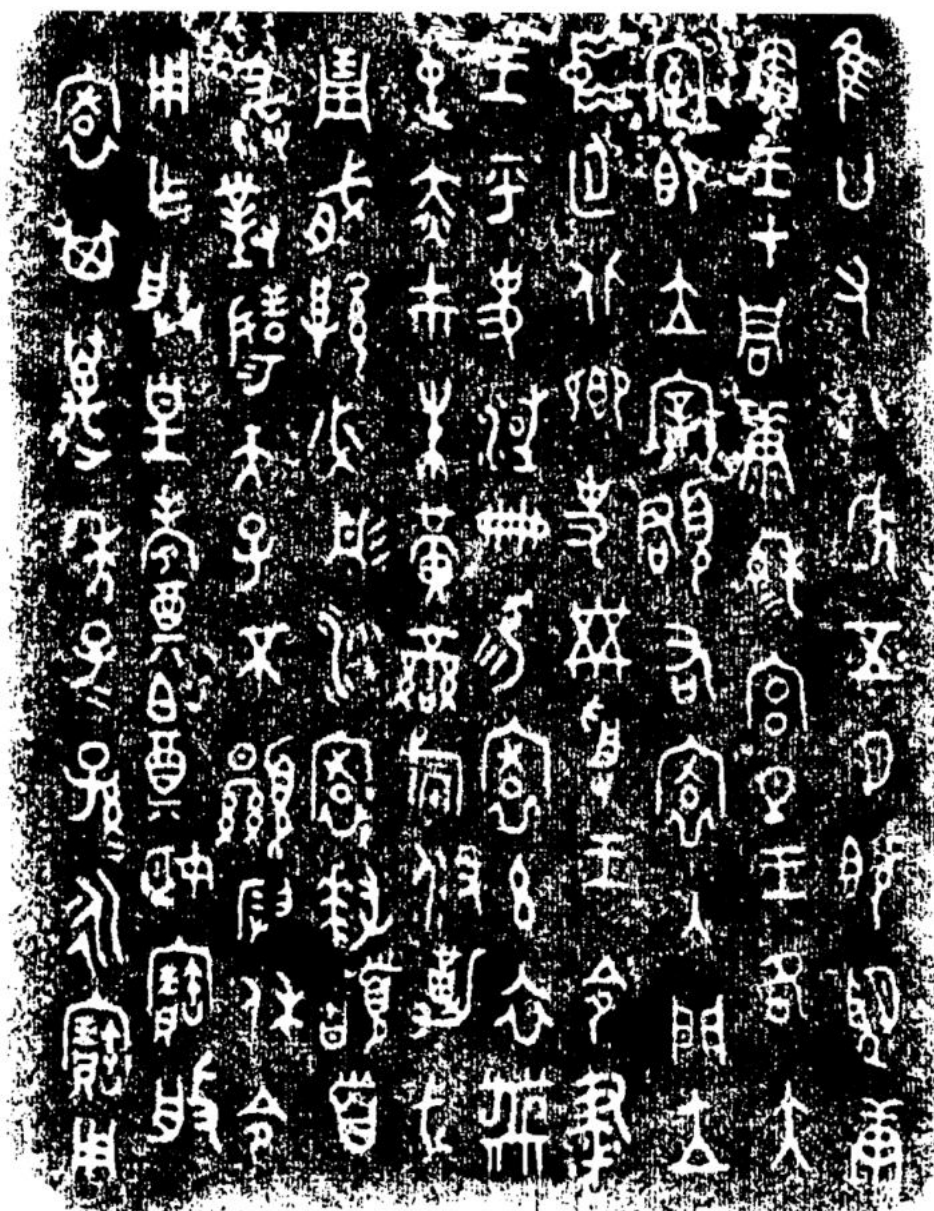 隹廿又八年五月既望庚
寅王才周康穆宮旦王各大
室即立宰頵右寰入門立
中廷北鄉史黹受王令書
王乎史淢冊易寰玄衣黹
屯赤巿朱黃䜌旂攸勒戈
琱㦸厚必彤沙寰拜𩒨首
敢對揚天子不顯叚休令
用乍朕皇考奠白奠姬寶般
寰其萬年子＝孫＝永寶用